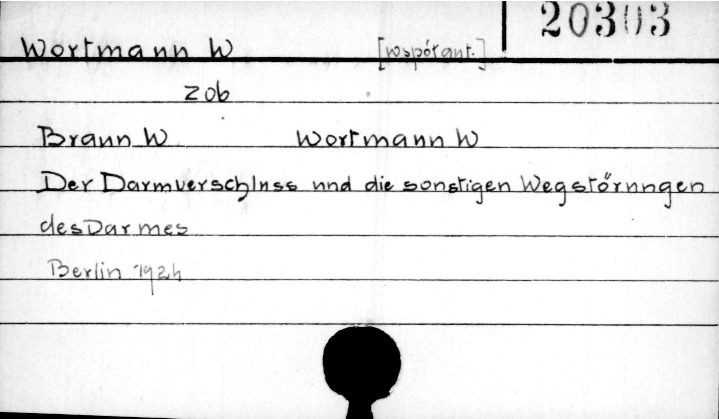 20303
Wortmann W [współaut.]
zob
Braun W Wortmann W
Der Darmverschluss und die sonstigen Wegstörungen
des Darmes
Berlin 1924